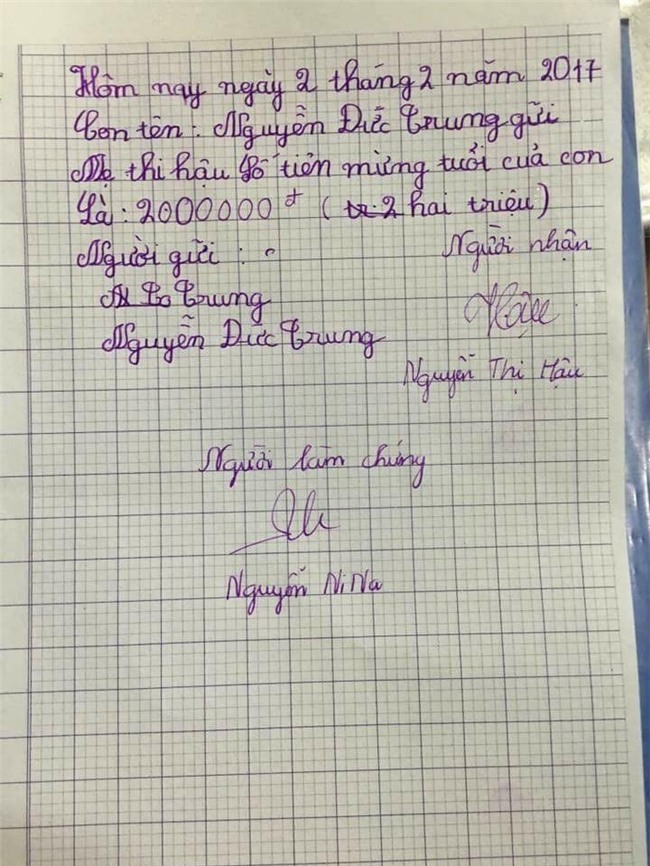 Hôm nay ngày 2 tháng 2 năm 2017
Con tên : Nguyễn Đức Trung gửi
Mẹ thi hậu số tiền mừng tuổi của con
Là : 2000000đ ( tr 2 hai triệu )
Người gửi :
Người nhận
Trung
Hậu
Nguyễn Đức Trung
Nguyễn Thị Hậu
Người làm chứng
Nguyễn NiNa